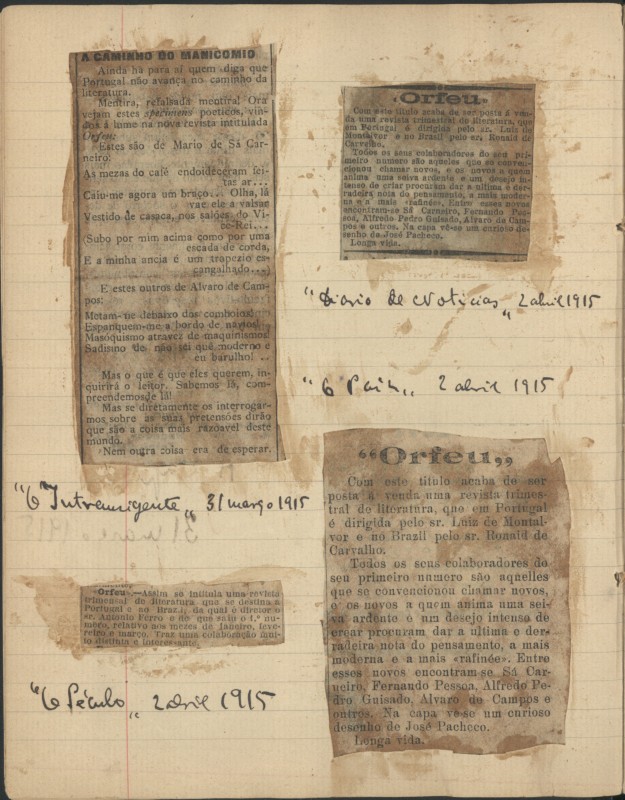 A CAMINHO DO MANICOMIO
Ainda ha para aí quem diga que
Portugal não avança no caminho da
literatura.
Mentira, refalsada mentira! Ora
vejam estes specimens poeticos, vin-
dos á lume na nova revista intitulada
Orfeu:
Estes são de Mario de Sá Car-
neiro:
As mezas do café endoideceram fei-
tas ar...
Caiu-me agora um braço... Olha, lá
vae ele a valsar
Vestido de casaca, nos salões do Vi-
ce-Rei...
(Subo por mim acima como por uma
escada de corda,
E a minha ancia é um trapezio es-
cangalhado...)
E estes outros de Alvaro de Cam-
pos:
Metam-me debaixo dos comboios
Espanquem-me a bordo de navios!
Masóquismo atravez de maquinismos!
Sadismo de não sei quê moderno e
eu barulho! ..
Mas o que é que eles querem, in-
quirirá o leitor. Sabemos lá, com-
preendemos lá!
Mas se diretamente os interrogar-
mos sobre as suas pretensões dirão
que são a coisa mais razoavel deste
mundo.
Nem outra coisa era de esperar.
"O Intransigente" 31 março 1915
«Orfeu».—Assim se intitula uma revista
trimensal de literatura que se destina a
Portugal e ao Brazil, da qual é diretor o
sr. Antonio Ferro e de que saiu o 1.º nu-
mero, relativo aos mezes de Janeiro, feve-
reiro e março. Traz uma colaboração mui-
to distinta e interessante.
"O Século" 2 abril 1915
«Orfeu»
Com este titulo acaba de ser posta á ven-
da uma revista trimestral de literatura, que
em Portugal é dirigida pelo sr. Luiz de
Montalvor e no Brazil pelo sr. Ronald de
Carvalho.
Todos os seus colaboradores do seu pri-
meiro numero são aqueles que se conven-
cionou chamar novos, e os novos a quem
anima uma seiva ardente e um desejo in-
tenso de criar procuram dar a ultima e der-
radeira nota do pensamento, a mais moder-
na e a mais «rafinée». Entre esses novos
encontram-se Sá Carneiro, Fernando Pes-
soa, Alfredo Pedro Guisado, Alvaro de Cam-
pos e outros. Na capa vê-se um curioso de-
senho de José Pacheco.
Longa vida.
"Diario de Noticias" 2 abril 1915
"O Paiz" 2 abril 1915
“Orfeu„
Com este titulo acaba de ser
posta á venda uma revista trimes-
tral de literatura, que em Portugal
é dirigida pelo sr. Luiz de Montal-
vor e no Brazil pelo sr. Ronald de
Carvalho.
Todos os seus colaboradores do
seu primeiro numero são aquelles
que se convencionou chamar novos,
e os novos a quem anima uma sei-
va ardente e um desejo intenso de
crear procuram dar a ultima e der-
radeira nota do pensamento, a mais
moderna e a mais «rafinée». Entre
esses novos encontram-se Sá Car-
neiro, Fernando Pessoa, Alfredo Pe-
dro Guisado, Alvaro de Campos e
outros. Na capa ve-se um curioso
desenho de José Pacheco.
Longa vida.